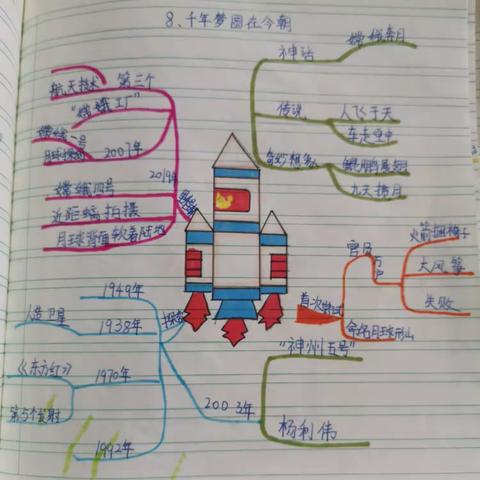 8、千年梦圆在今朝
神话
嫦娥奔月
传说
人飞于天
车走空中
奇妙想象
鲲鹏展翅
九天揽月
航天技术
第三个
"嫦娥工厂"
嫦娥一号
2007年
月球探测
2019年
嫦娥四号
近距离拍摄
月球背面软着陆地
官员
万户
火箭捆椅子
大风筝
失败
首次尝试
命名月球形山
1949年
人造卫星
1938年
探索
《东方红》
1970年
第5个发射
1992年
2003年
"神州五号"
杨利伟